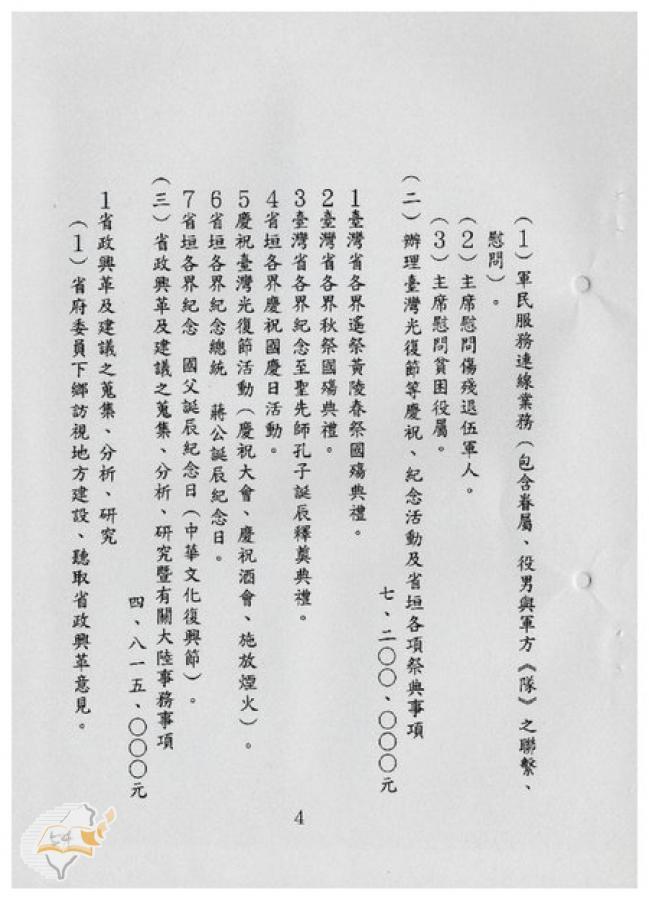 （1）軍民服務連線業務（包含眷屬、役男與軍方《隊》之聯繫、
慰問）。
（2）主席慰問傷殘退伍軍人。
（3）主席慰問貧困役屬。
（二）辦理臺灣光復節等慶祝、紀念活動及省垣各項祭典事項
七、二〇〇、〇〇〇元
1臺灣省各界遙祭黃陵春祭國殤典禮。
2臺灣省各界秋祭國殤典禮。
3臺灣省各界紀念至聖先師孔子誕辰釋奠典禮。
4省垣各界慶祝國慶日活動。
5慶祝臺灣光復節活動（慶祝大會、慶祝酒會、施放煙火）。
6省垣各界紀念總統　蔣公誕辰紀念日。
7省垣各界紀念　國父誕辰紀念日（中華文化復興節）。
（三）省政興革及建議之蒐集、分析、研究暨有關大陸事務事項
四、八一五、〇〇〇元
1省政興革及建議之蒐集、分析、研究
（1）省府委員下鄉訪視地方建設、聽取省政興革意見。
4
54